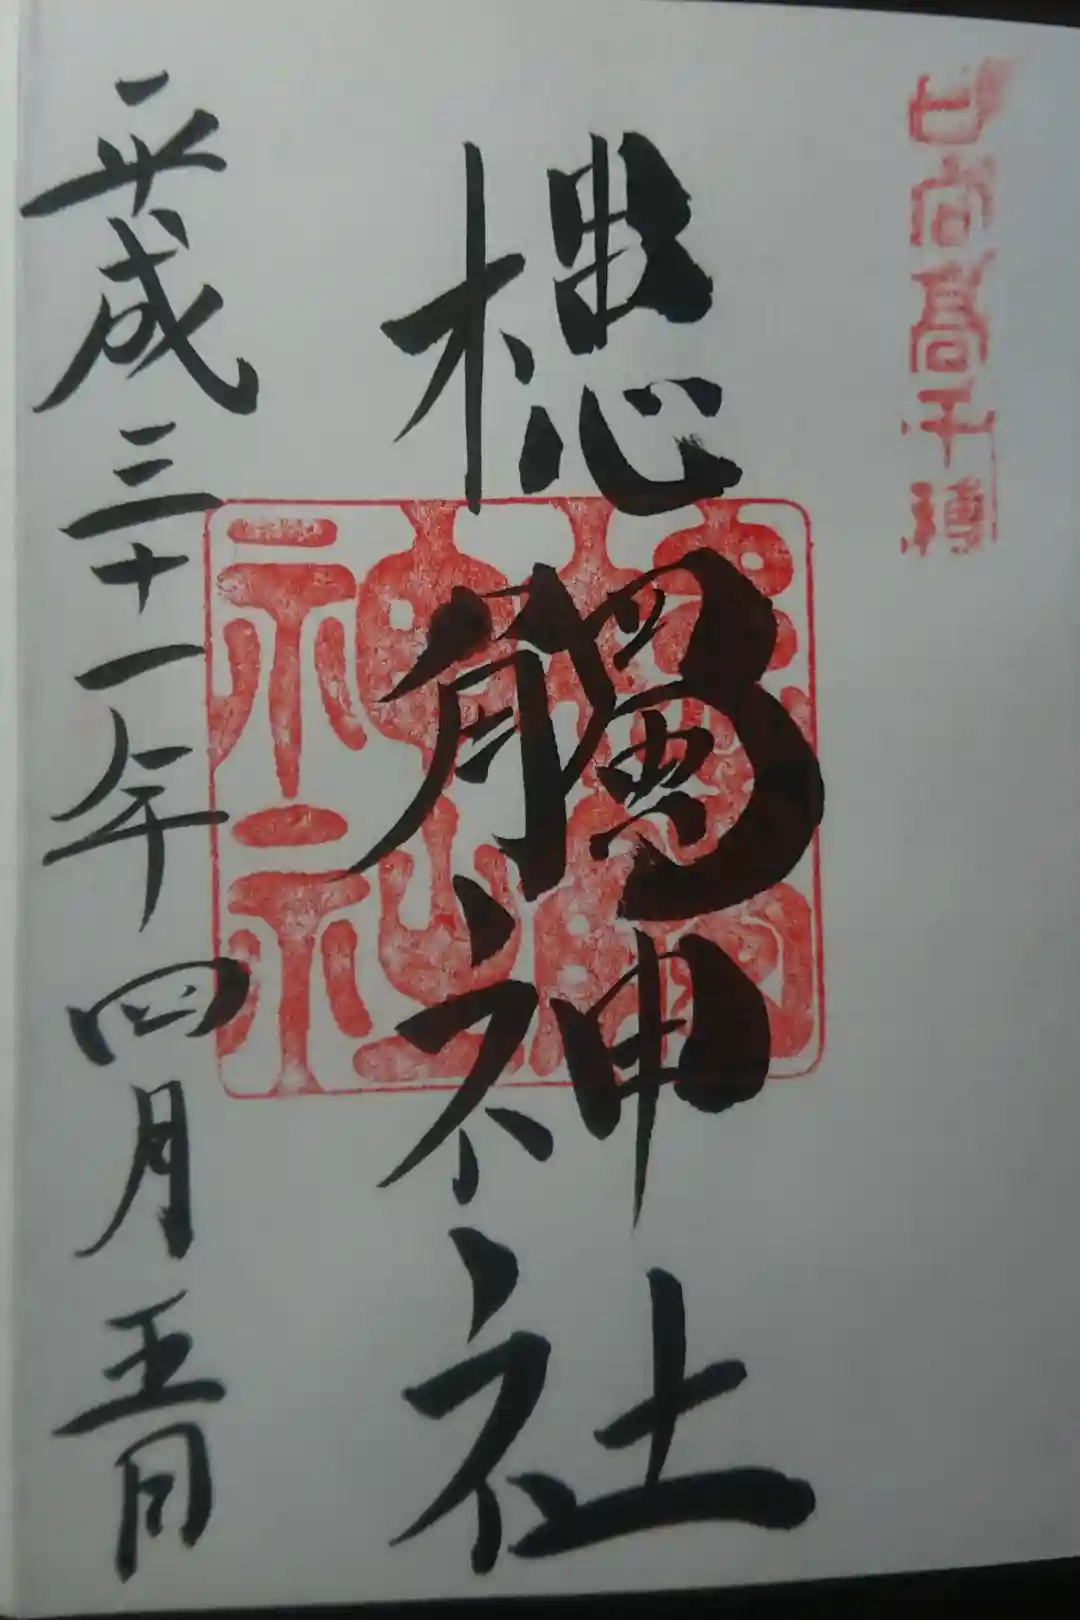 日向高千穂
槵觸神社
平成三十一年四月五日
神社